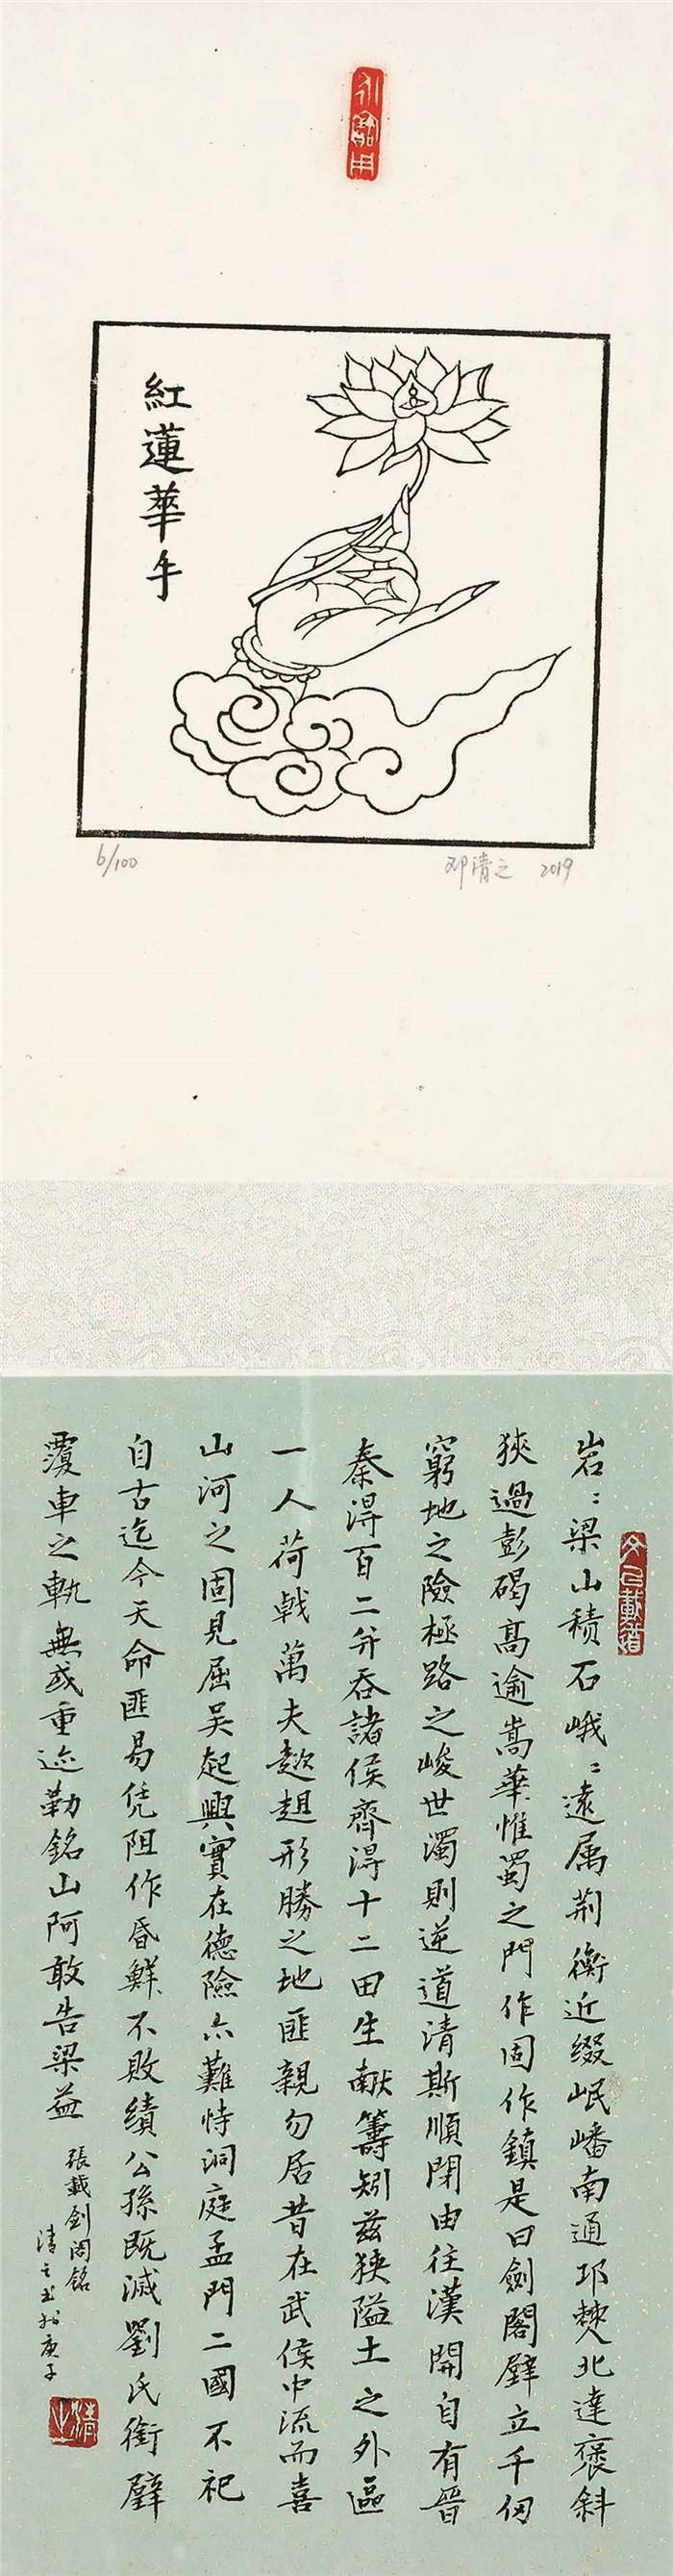 紅蓮華手
6/100
邓清之 2019
文以載道
岩〻梁山積石峨〻遠属荆衡近缀岷嶓南通邛僰北達褒斜
狹過彭碣高逾嵩華惟蜀之門作固作鎮是曰劍閣壁立千仞
窮地之險極路之峻世濁則逆道清斯順閉由往漢開自有晉
秦得百二并吞諸侯齊得十二田生献籌矧兹狹隘土之外區
一人荷戟萬夫趑趄形勝之地匪親勿居昔在武侯中流而喜
山河之固見屈吴起興實在德險亦難恃洞庭孟門二國不祀
自古迄今天命匪易凭阻作昏鮮不敗績公孫既滅劉氏銜璧
覆車之軌無或重迹勒銘山阿敢告梁益
張載剑阁銘
清之书於庚子
清之